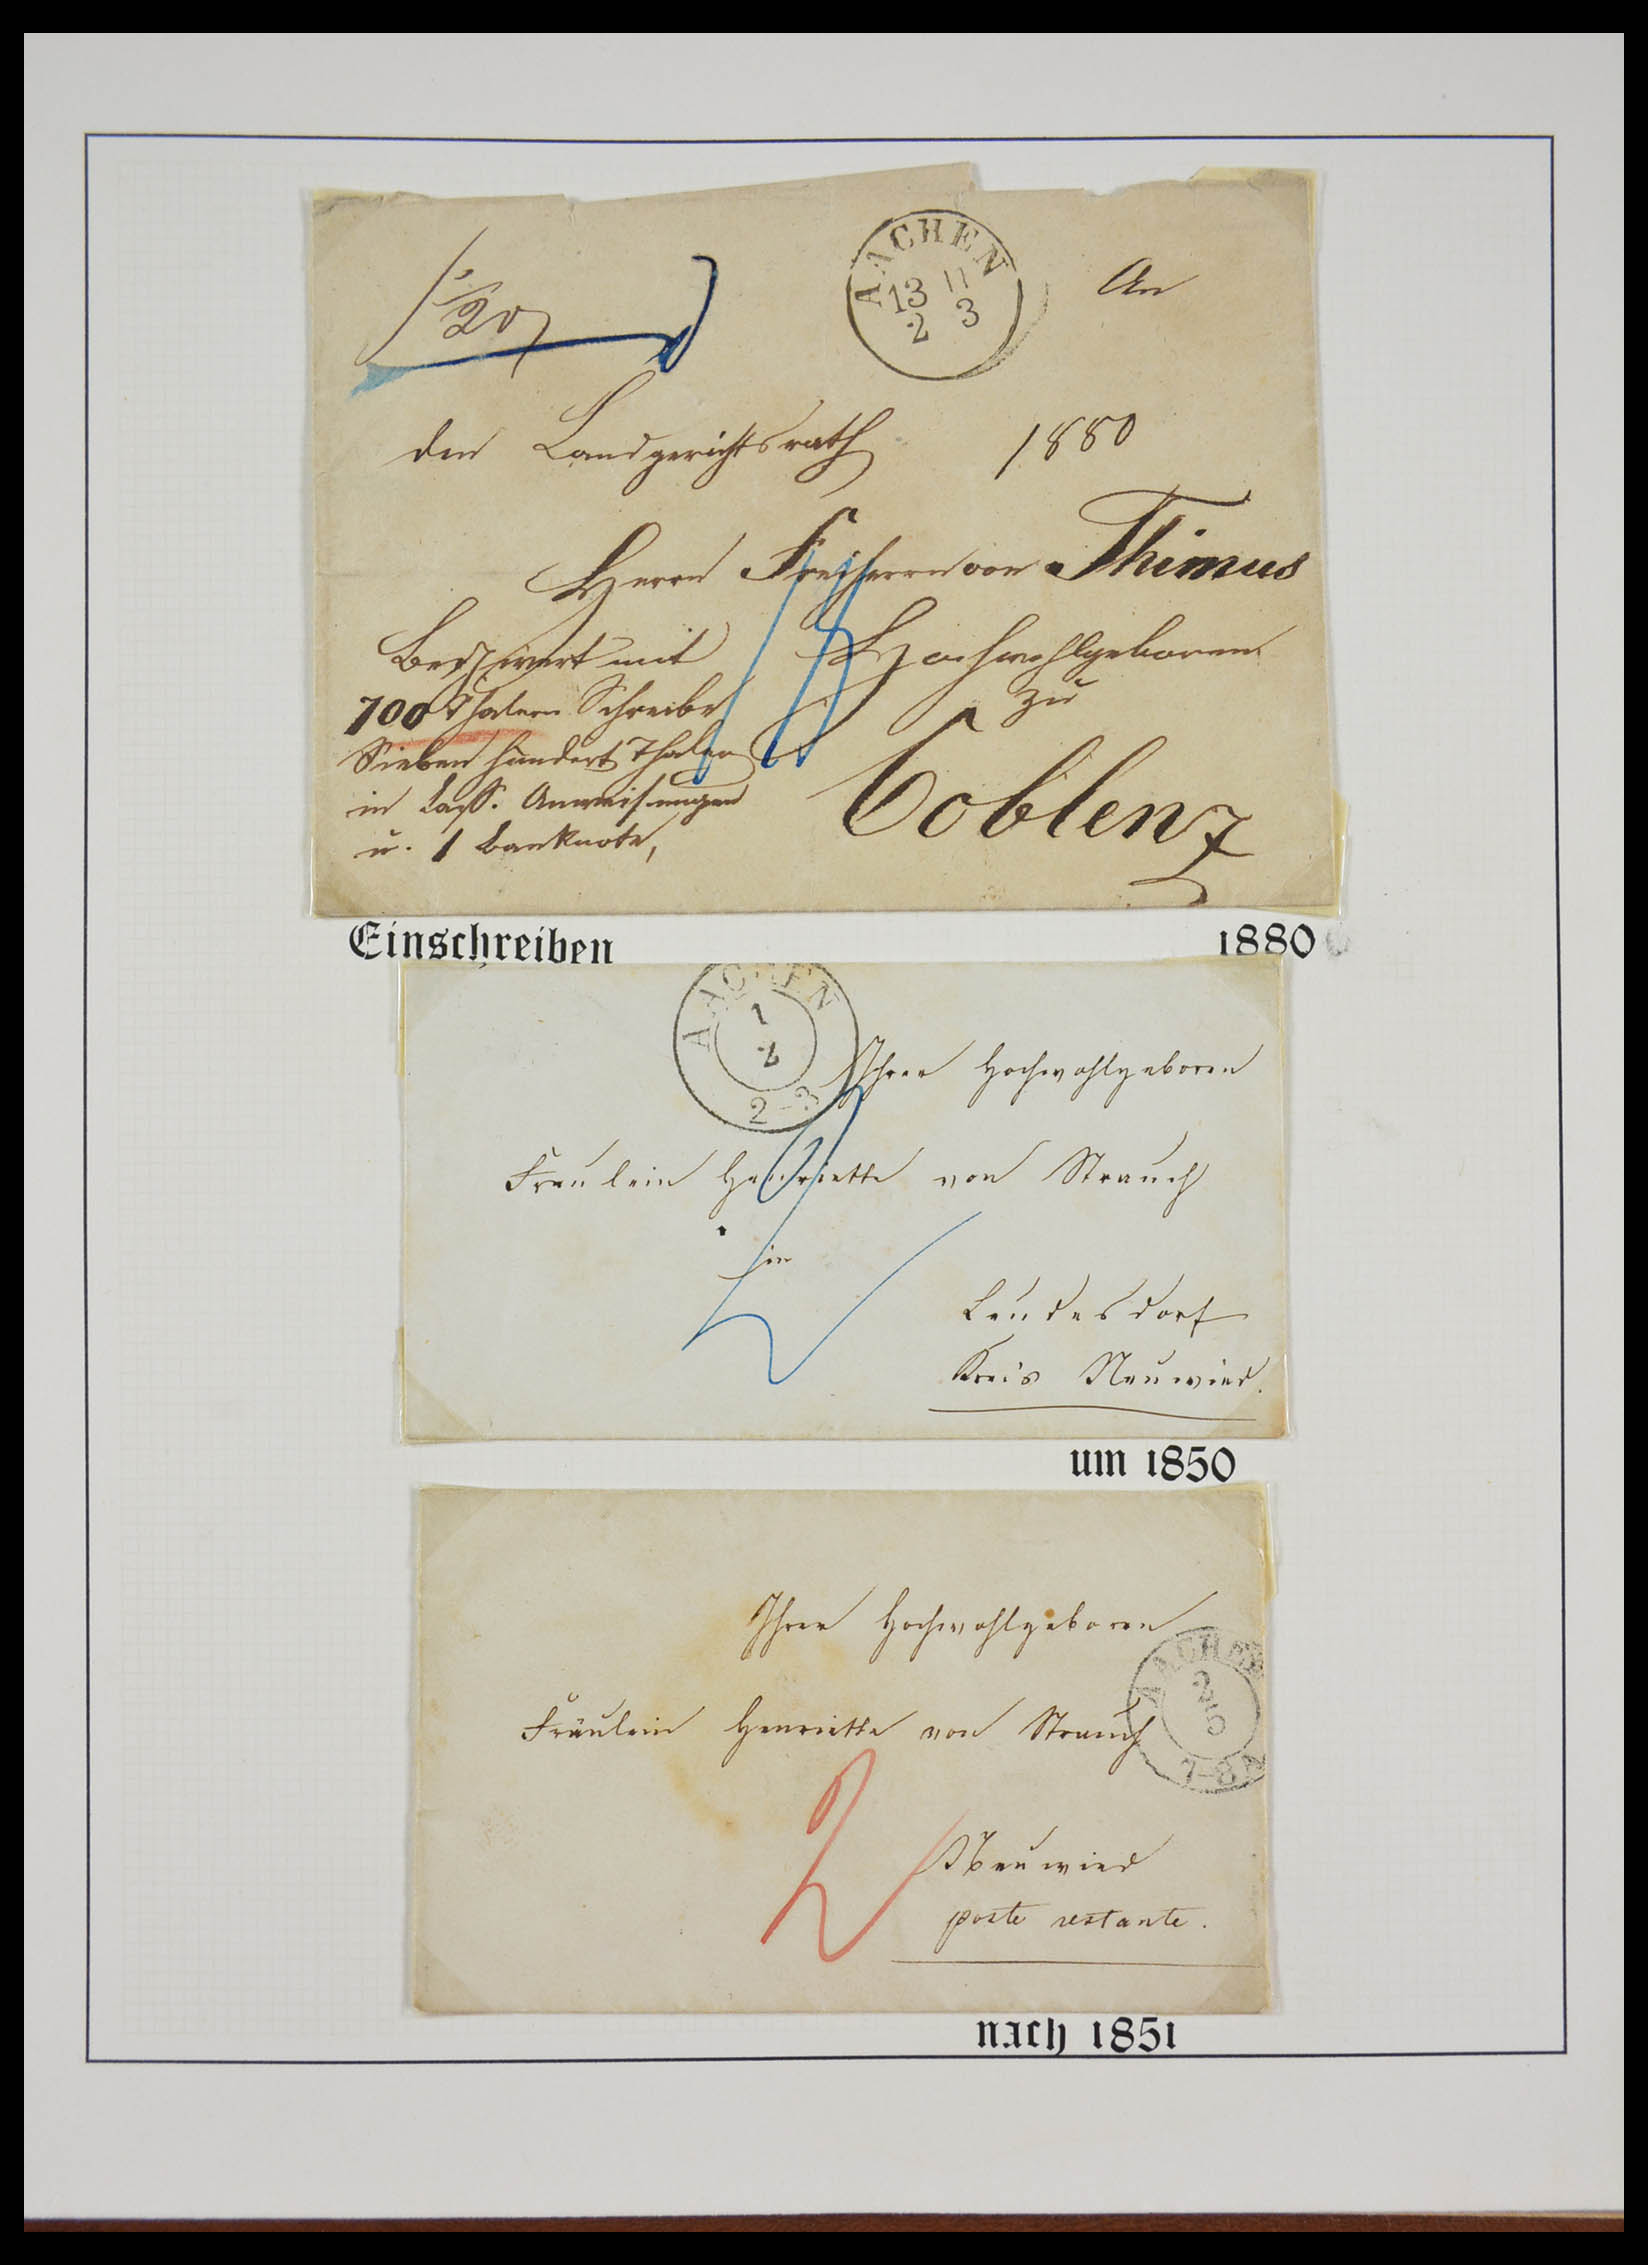 AACHEN
13 11
2 3
An
den Landgerichtsrath
1880
Herrn Freiherrn von Thimus
Hochwohlgeboren
zu
Coblenz
Beschwert mit
700 Thalern Schreibe
Sieben hundert Thaler
in Cass. Anweisungen
u. 1 Banknote,
Einschreiben
1880
AACHEN
1
2-3
Ihrer Hochwohlgeboren
Fräulein Henriette von Strauch
in
Leudesdorf
Kreis Neuwied.
um 1850
Ihrer Hochwohlgeboren
AACHEN
2
5
7-8
Fräulein Henriette von Strauch
2
Neuwied
poste restante.
nach 1851